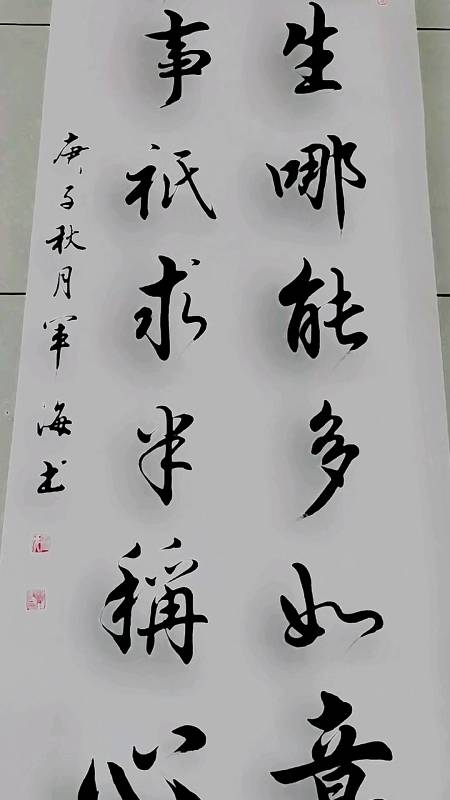 生哪能多如意
事祇求半稱心
庚子秋月军海书